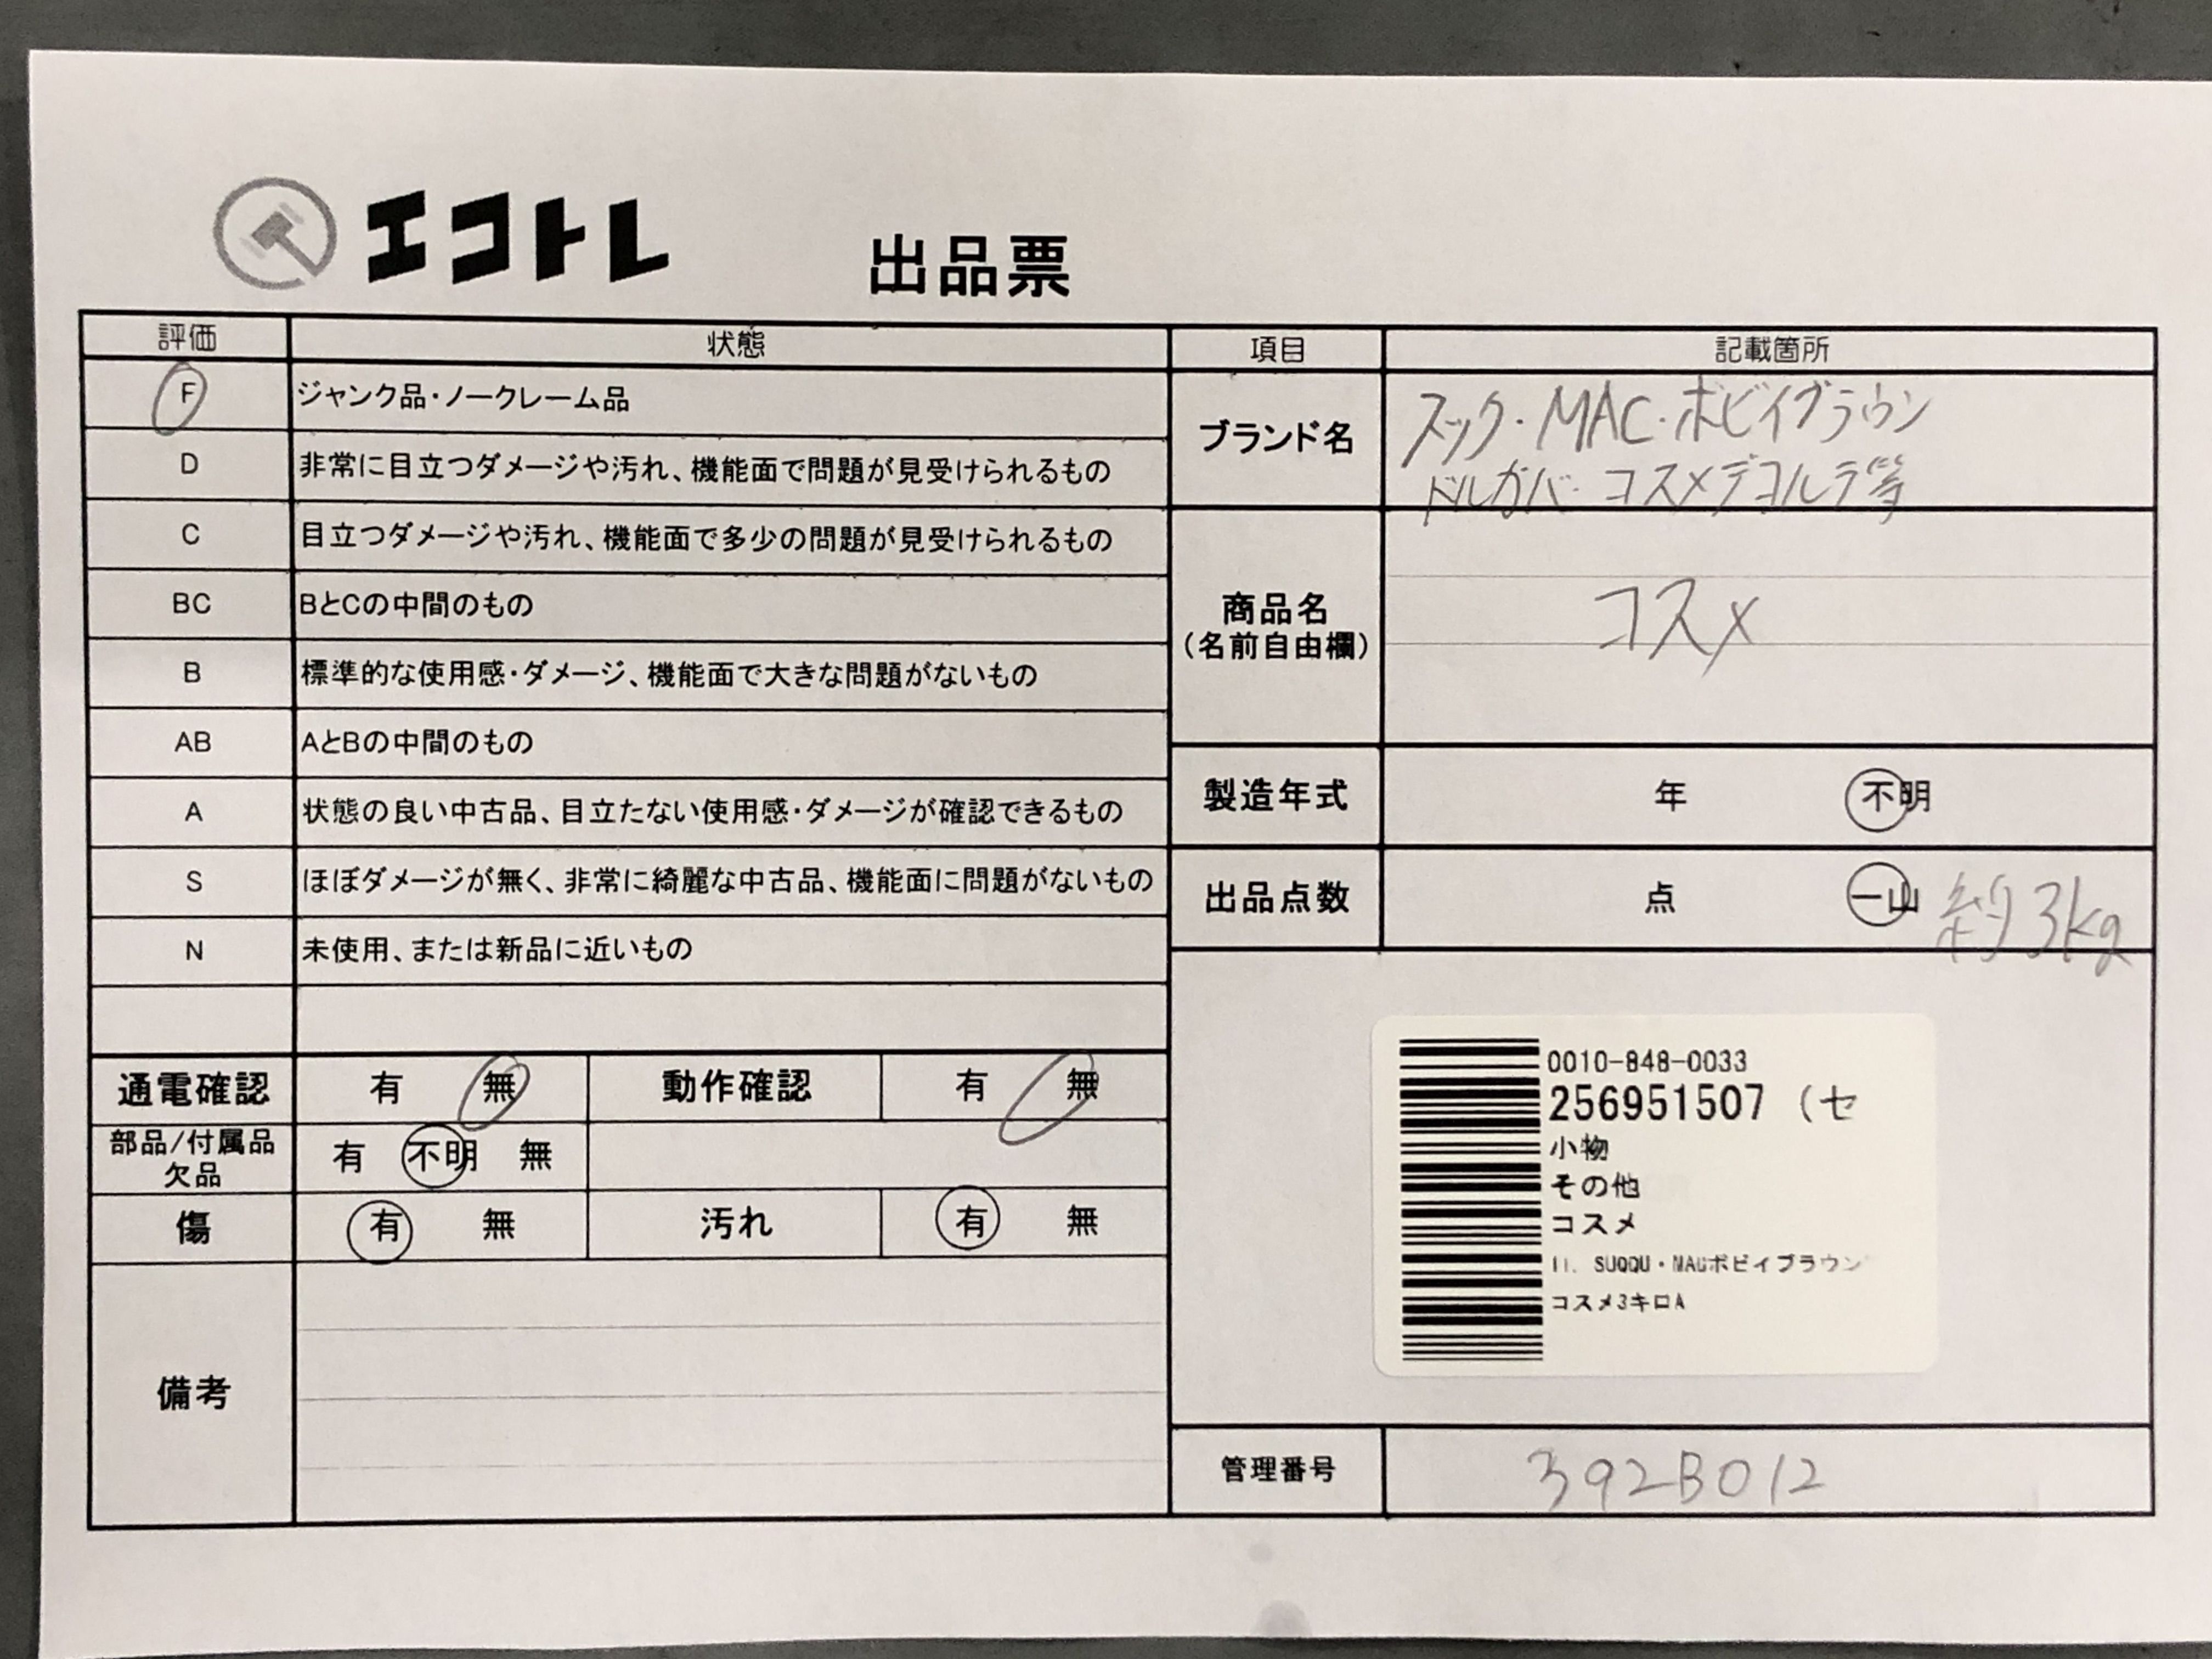 エコトレ
出品票
評価 状態
F ジャンク品・ノークレーム品
D 非常に目立つダメージや汚れ、機能面で問題が見受けられるもの
C 目立つダメージや汚れ、機能面で多少の問題が見受けられるもの
BC BとCの中間のもの
B 標準的な使用感・ダメージ、機能面で大きな問題がないもの
AB AとBの中間のもの
A 状態の良い中古品、目立たない使用感・ダメージが確認できるもの
S ほぼダメージが無く、非常に綺麗な中古品、機能面に問題がないもの
N 未使用、または新品に近いもの
通電確認 有 無 動作確認 有 無
部品/付属品
欠品
有 不明 無
傷 有 無 汚れ 有 無
備考
項目 記載箇所
ブランド名
スック・MAC・ボビイブラウン
ドルガバ・コスメデコルテ等
商品名
(名前自由欄)
コスメ
製造年式 年 不明
出品点数 点 一山 約3kg
0010-848-0033
256951507 (セ
小物
その他
コスメ
SUQQU・MACボビイブラウン
コスメ3キロA
管理番号 392B012